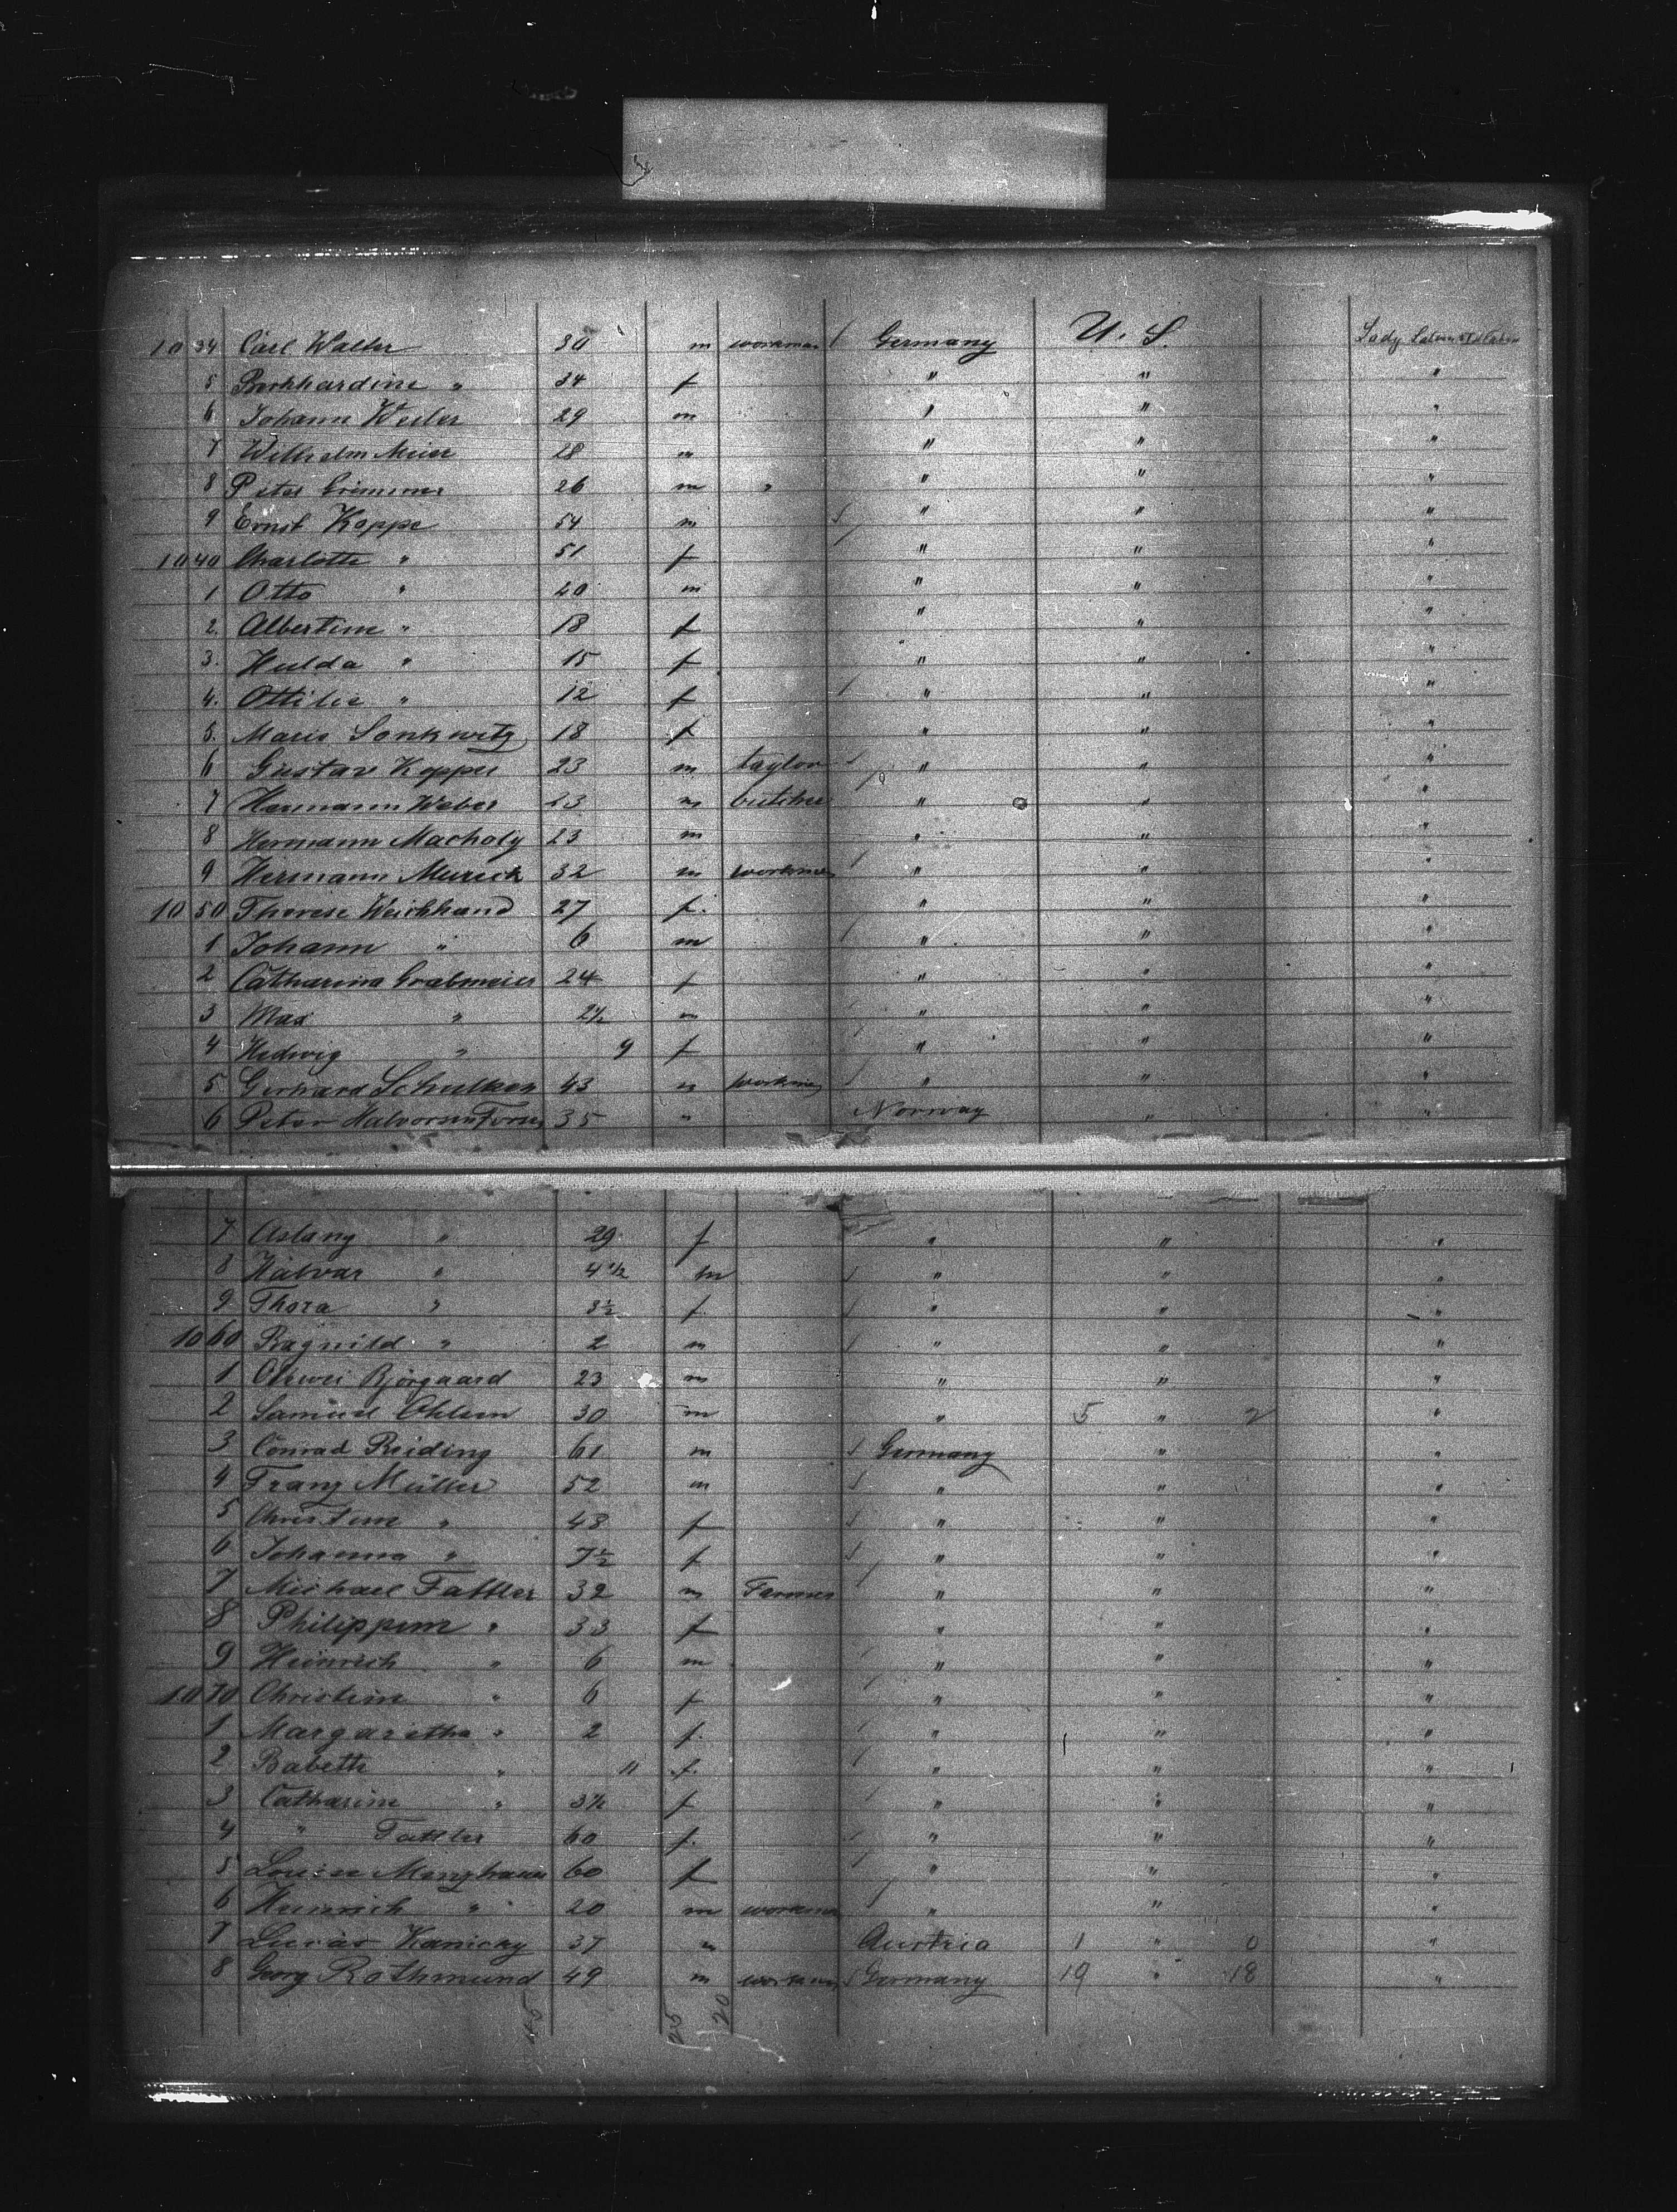 10 34 Carl Walter 30 m workman Germany U. S.
5 " 34 f " " "
6 Johann Weiler 29 m " " "
7 Wilhelm Meier 28 m " " "
8 Peter 26 m " " " "
9 Ernst Koppe 54 m " " "
10 40 Charlotte " 51 f " " "
1 Otto " 20 m " " "
2. Albertine " 18 f " " "
3. Hulda " 15 f " " "
4. Ottilie " 12 f " " "
5. Marie Sonkwitz 18 f " " "
6 Gustav Koppe 23 m taylor " " "
7 Hermann Weber 23 m butcher " " "
8 Hermann Macholy 23 m " " "
9 Hermann Mureck 32 m workman " " "
10 50 Therese Weichhand 27 f. " " "
1 Johann " 6 m " " "
2 Catharina Grabmeier 24 f " " "
3 Max " 2½ m " " "
4 Hedwig " 9 f " " "
5 Gerhard Schulken 43 m workman " " "
6 Peter Halvorsen 35 " Norway " "
7 Aslang " 29 f " " "
8 Halvar " 4 ½ m " " "
9 Thora " 3½ f " " "
10 60 Ragnild " 2 m " " "
1 Bjorgaard 23 m " " "
2 Samuel Ohlsen 30 m " 5 " 2 "
3 Conrad Reiding 61 m Germany " "
4 Franz Müller 52 m " " "
5 Christine " 48 f " " "
6 Johanna " 7½ f " " "
7 Michael Fattler 32 m Farmer " " "
8 Philippine " 33 f " " "
9 Heinrich " 6 m " " "
10 70 Christine " 6 f " " "
1 Margaretha " 2 f. " " "
2 Babette " 11 f. " " "
3 Catharine " 3½ f " " "
4 " Fattler 60 f. " " "
5 Louise 60 f " " "
6 Heinrich " 20 m workman " " "
7 Kanicky 37 m Austria 1 " 0 "
8 Georg Rothmund 49 m workman Germany 19 " 18 "
45 25 20